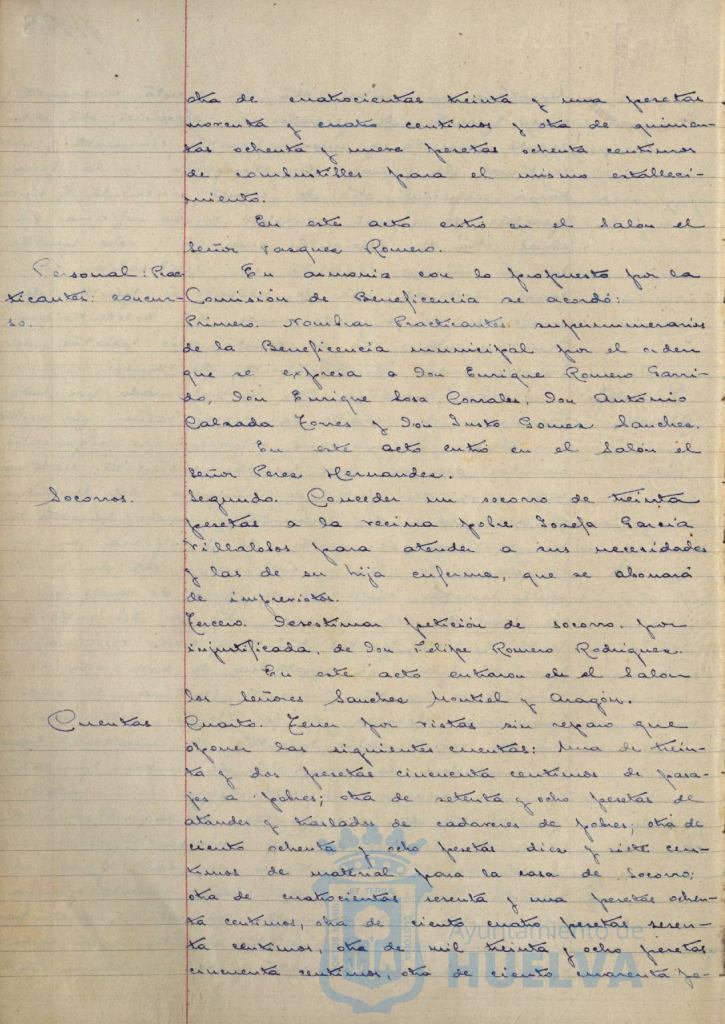 otra de cuatrocientas treinta y una pesetas
noventa y cuatro centimos y otra de quinien-
tas ochenta y nueve pesetas ochenta centimos
de combustibles para el mismo estableci-
miento.
En este acto entró en el Salón el
Señor Vazquez Romero.
Personal: Prac
ticantes: concur-
so.
En armonia con lo propuesto por la
Comisión de Beneficencia se acordó:
Primero. Nombrar Practicantes supernumerarios
de la Beneficencia municipal por el orden
que se expresa a Don Enrique Romero Garri-
do, Don Enrique Sosa Corrales, Don Antonio
Calzada Torres y Don Justo Gomez Sanchez.
En este acto entró en el Salón el
Señor Perez Hernandez.
Socorros.
Segundo. Conceder un socorro de treinta
pesetas a la vecina pobre Josefa Garcia
Villalobos para atender a sus necesidades
y las de su hija enferma, que se abonará
de imprevistos.
Tercero. Desestimar petición de socorro, por
injustificada, de Don Felipe Romero Rodriguez.
En este acto entraron en el Salón
los Señores Sanchez Montiel y Aragón.
Cuentas
Cuarto. Tener por vistas sin reparo que
oponer las siguientes cuentas: Una de trein-
ta y dos pesetas cincuenta centimos de pasa-
jes a pobres; otra de setenta y ocho pesetas de
ataudes y traslados de cadaveres de pobres; otra de
ciento ochenta y ocho pesetas diez y siete cen-
timos de material para la casa de Socorro;
otra de cuatrocientas sesenta y una pesetas ochen-
ta centimos, otra de ciento cuatro pesetas sesen-
ta centimos, otra de mil treinta y ocho pesetas
cincuenta centimos, otra de ciento cuarenta pe-
Ayuntamiento de
HUELVA